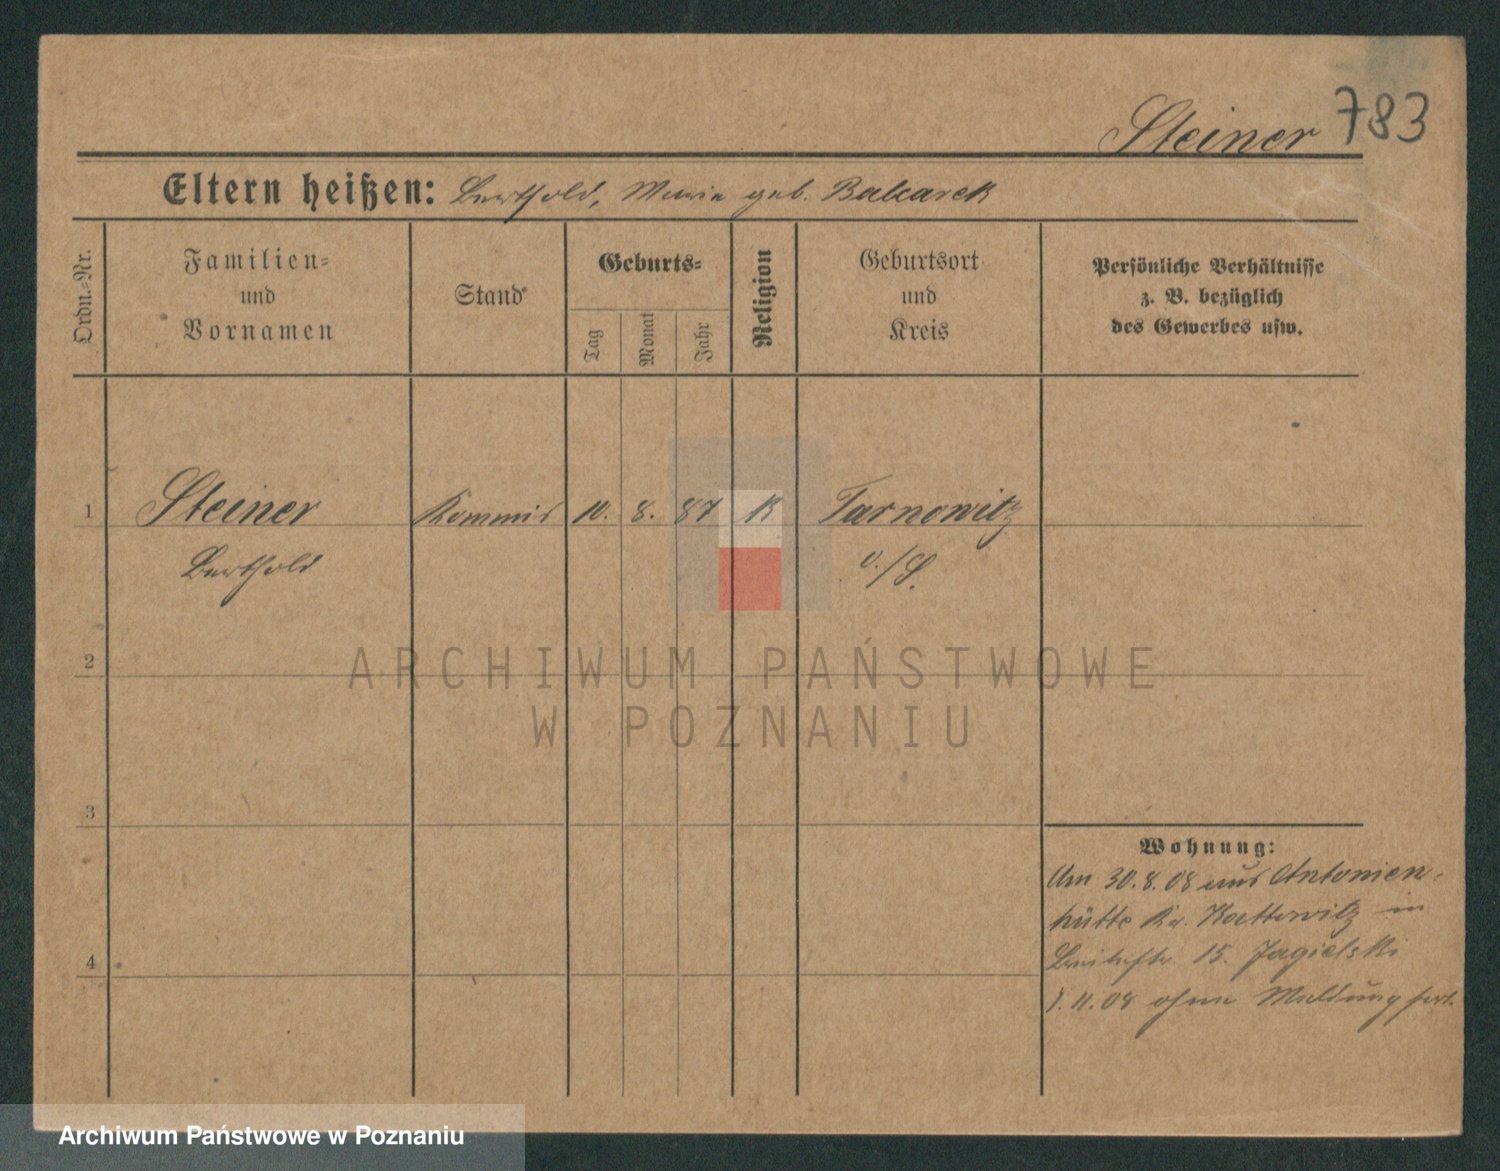 Steiner 783
Eltern heißen: Berthold, Marie geb. Balcarek
Ordn.-Nr.
Familien-
und
Vornamen
Stand
Geburts-
Tag
Monat
Jahr
Religion
Geburtsort
und
Kreis
Persönliche Verhältnisse
z. B. bezüglich
des Gewerbes usw.
1 Steiner Kommis 10. 8. 87 K Tarnowitz
Berthold o./S.
2
3
4
Wohnung:
Am 30.8.08 aus Antonien-
hütte Kr. Kattowitz in
Breitestr. 15. Jagielski
11.08 ohne Meldung fort.
ARCHIWUM PAŃSTWOWE
W POZNANIU
Archiwum Państwowe w Poznaniu